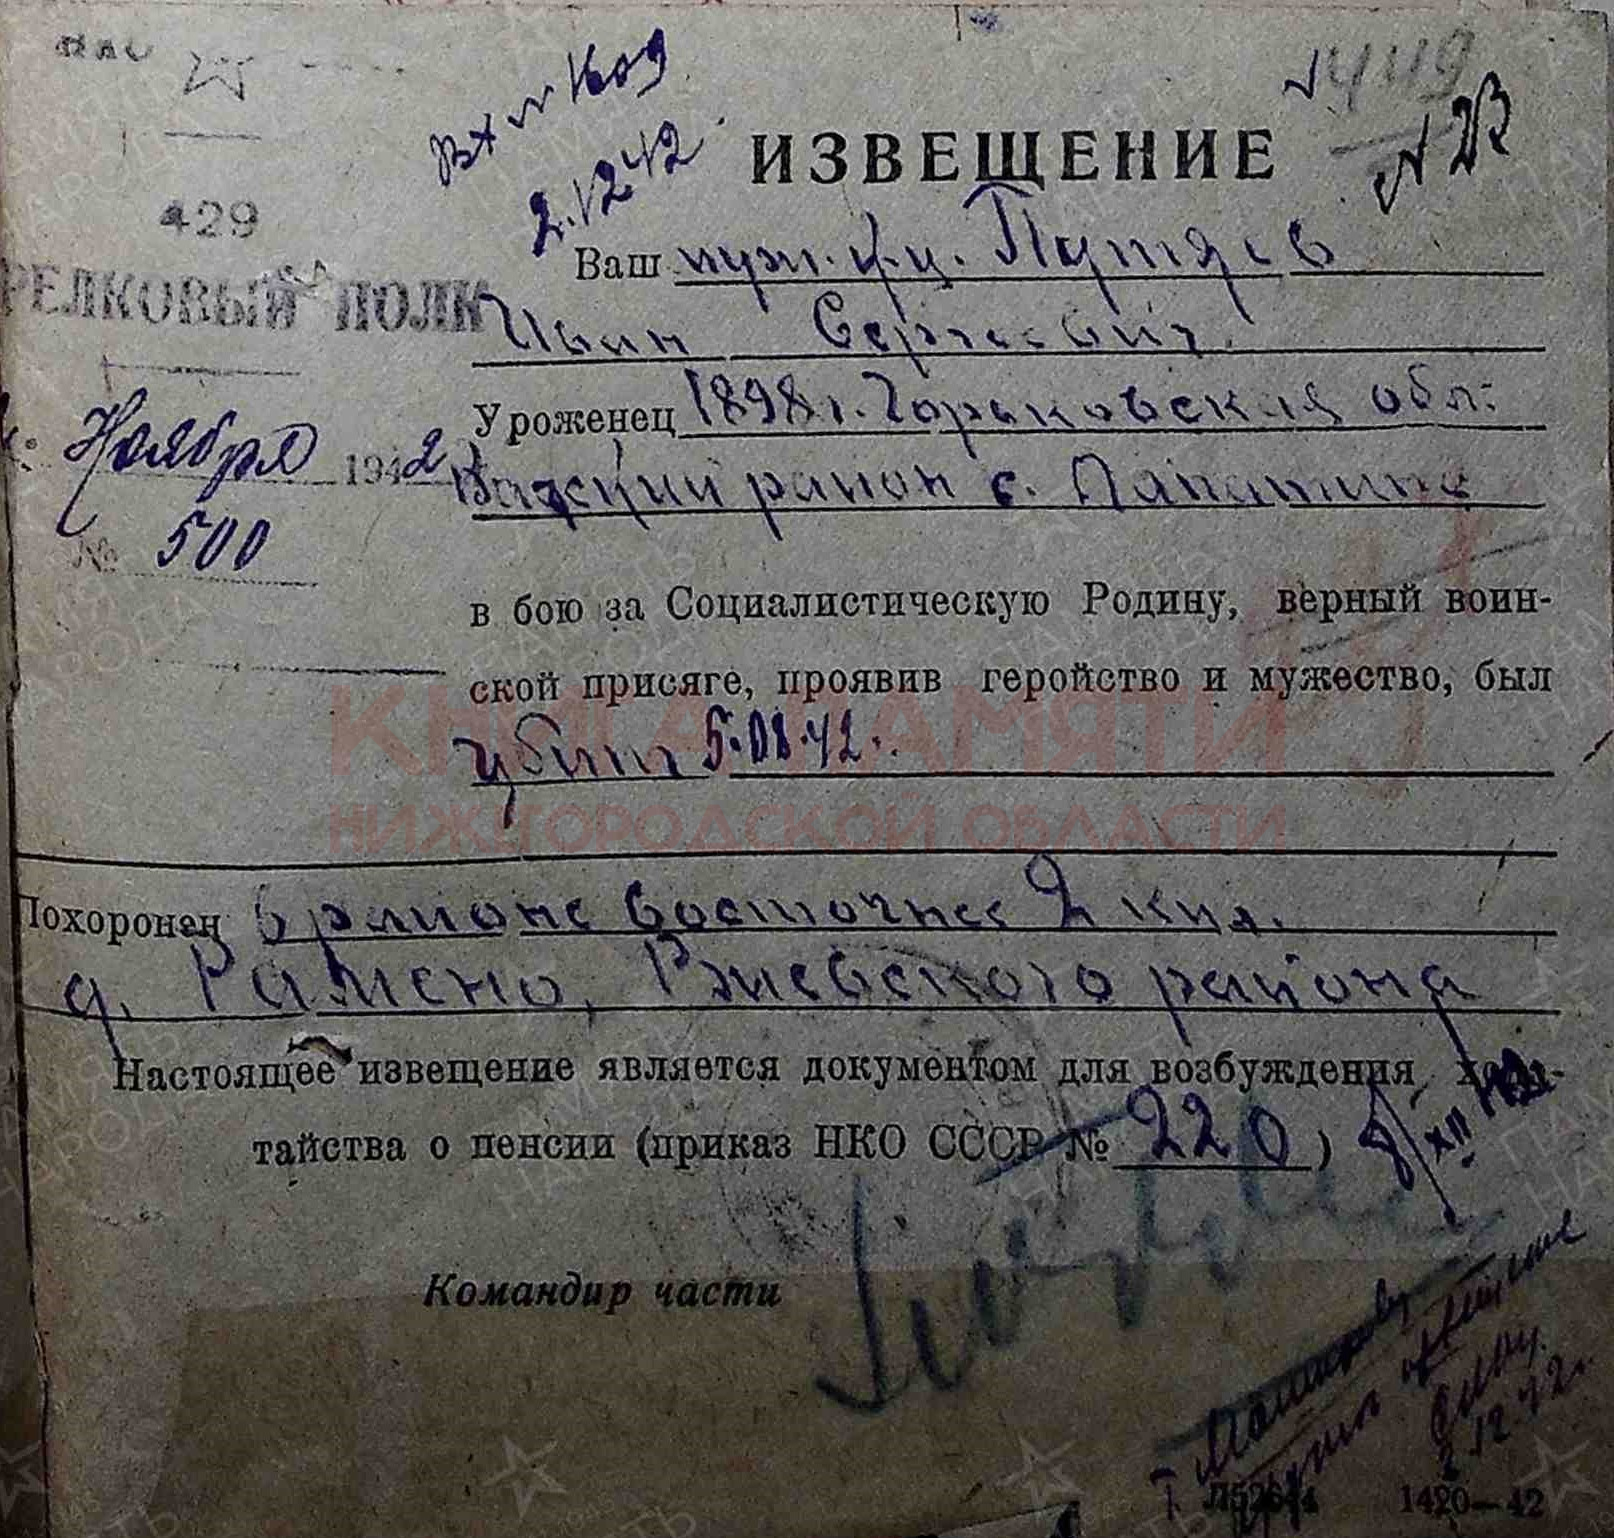 НКО
429
РЕЛКОВЫЙ ПОЛК
Ноября 1942
№ 500
Вх № 1609
2.12.42.
4119
N 23
ИЗВЕЩЕНИЕ
Ваш муж. кр-ц. Путяев
Иван Сергеевич.
Уроженец 1898 г. Горьковская обл.
Вадский район с. Лапатино
в бою за Социалистическую Родину, верный воин-
ской присяге, проявив геройство и мужество, был
убит 5.08.42.
КНИГА ПАМЯТИ
НИЖЕГОРОДСКОЙ ОБЛАСТИ
Похоронен в районе восточнее 2 кил.
д. Рамено, Ржевского района
Настоящее извещение является документом для возбуждения хода-
тайства о пенсии (приказ НКО СССР № 220)
XII
Командир части
2.12.42г.
1420—42
ПАМЯТЬ НАРОДА